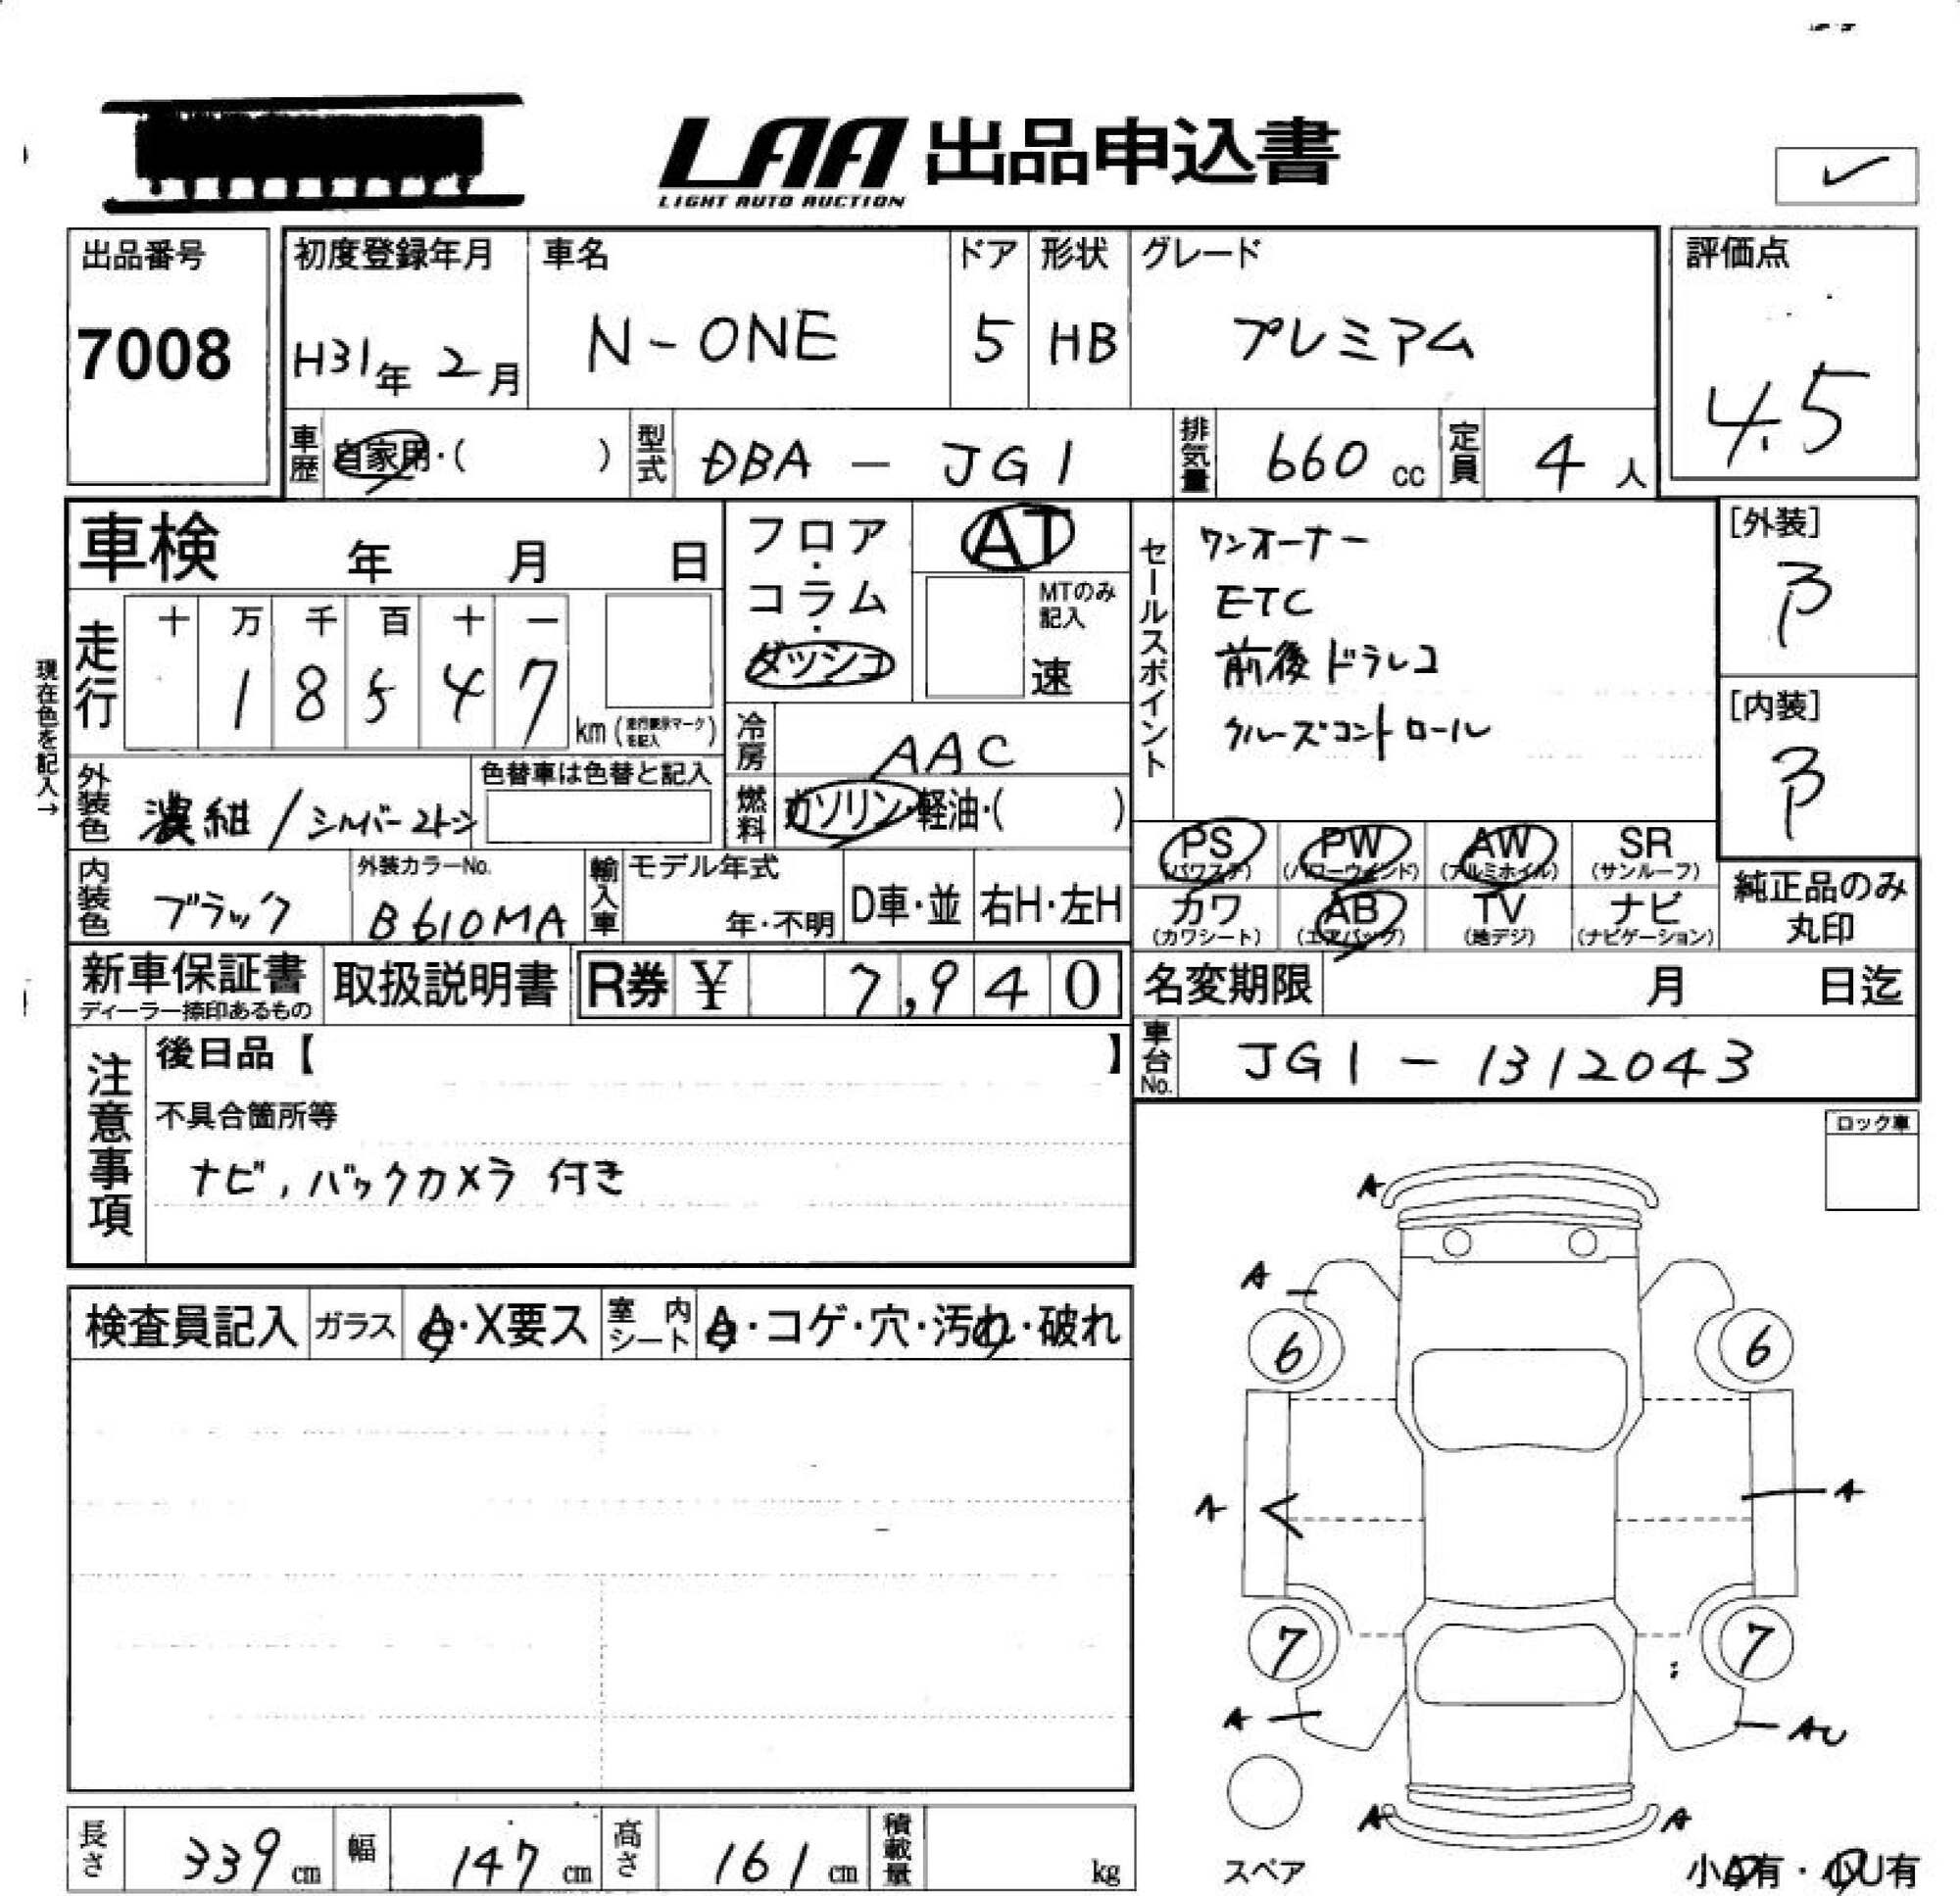 LAA 出品申込書
LIGHT AUTO AUCTION
✓
出品番号
7008
初度登録年月
H31年 2月
車名
N-ONE
ドア
5
形状
HB
グレード
プレミアム
評価点
4.5
車歴
自家用・( )
型式
DBA - JG1
排気量
660 cc
定員
4 人
車検 年 月 日
フロア・コラム・ダッシュ
AT
MTのみ記入
速
セールスポイント
ワンオーナー
ETC
前後ドラレコ
クルーズコントロール
[外装]
B
[内装]
B
現在色を記入→
走行
十 万 千 百 十 一
1 8 5 4 7
km (走行表示マークを記入)
冷房
AAC
外装色
濃紺/シルバー2トン
色替車は色替と記入
燃料
ガソリン・軽油・( )
PS (パワステ)
PW (パワーウインド)
AW (アルミホイル)
SR (サンルーフ)
内装色
ブラック
外装カラーNo.
B610MA
輸入車
モデル年式
年・不明
D車・並
右H・左H
カワ (カワシート)
AB (エアバッグ)
TV (地デジ)
ナビ (ナビゲーション)
純正品のみ
丸印
新車保証書
ディーラー捺印あるもの
取扱説明書
R券 ¥ 7,940
名変期限 月 日迄
車台No.
JG1-1312043
注意事項
後日品【 】
不具合箇所等
ナビ,バックカメラ付き
ロック車
検査員記入
ガラス
A・X要ス
室内シート
A・コゲ・穴・汚れ・破れ
A
A
6 6
A A
7 7
A AU
A A
スペア
小A有・小U有
長さ
339 cm
幅
147 cm
高さ
161 cm
積載量
kg